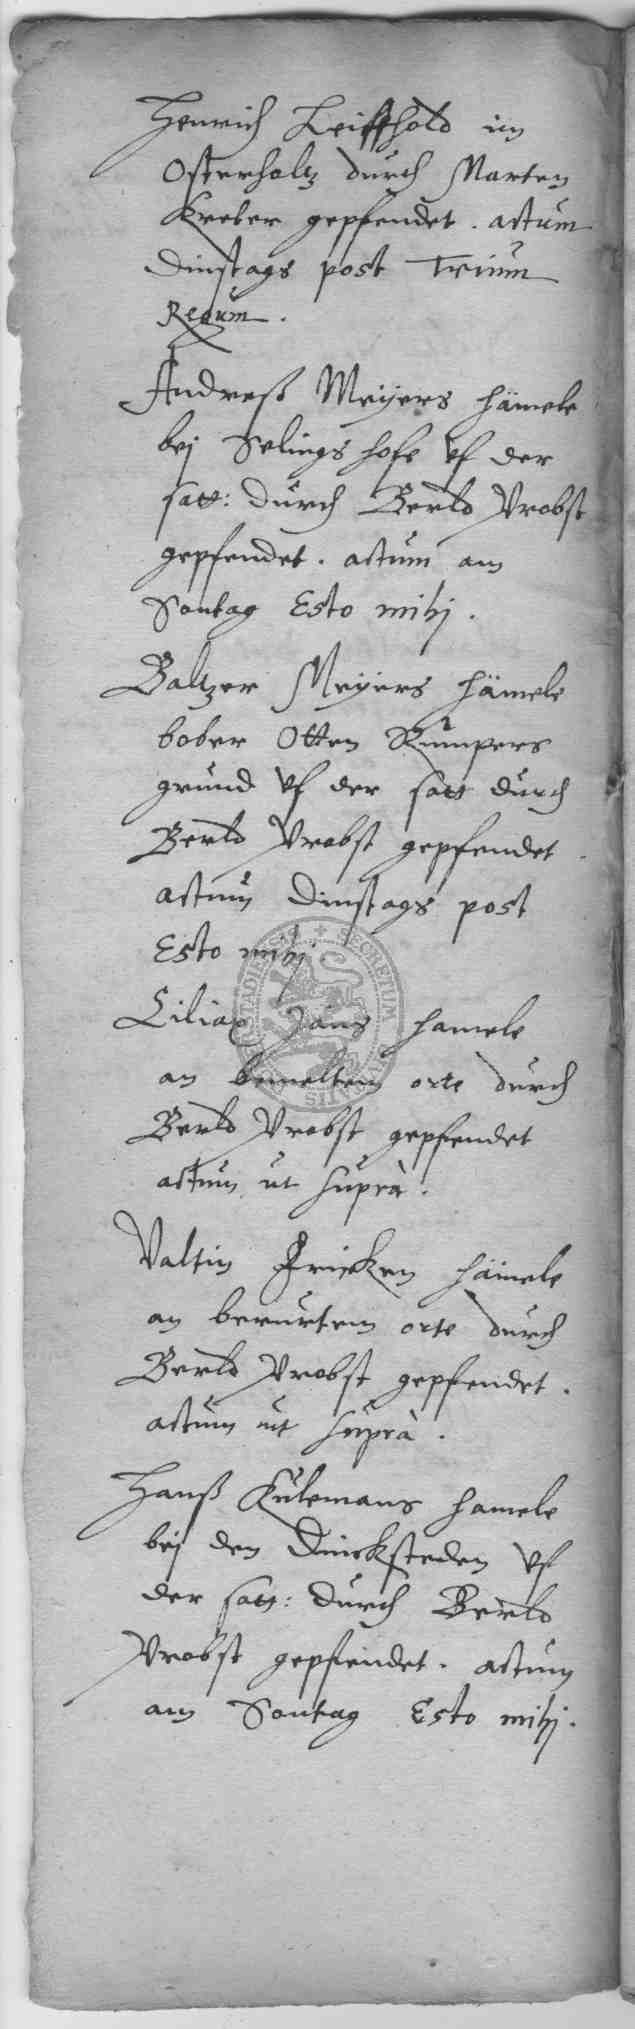 Henrich Leiffhold im
Osterholtz durch Marten
Kreter gepfendet. actum
Dinstags post Trium
Regum.
Andreß Meyers hämele
bej Selings hofe vf der
satt: durch Berld Probst
gepfendet. actum am
Sontag Esto mihj.
Baltzer Meyers hämele
bober Otten Rumpers
grund vf der satt durch
Berld Probst gepfendet.
actum Dinstags post
Esto mihj.
Ciliax Jans hamele
an bemeltem orte durch
Berld Probst gepfendet
actum ut suprà.
Valtin Fricken hämele
an berurtem orte durch
Berld Probst gepfendet.
actum ut suprà.
Hanß Kulemans hamele
bej den Dincksteden vf
der satt: durch Berld
Probst gepfendet. actum
am Sontag Esto mihj.
SECRETUM